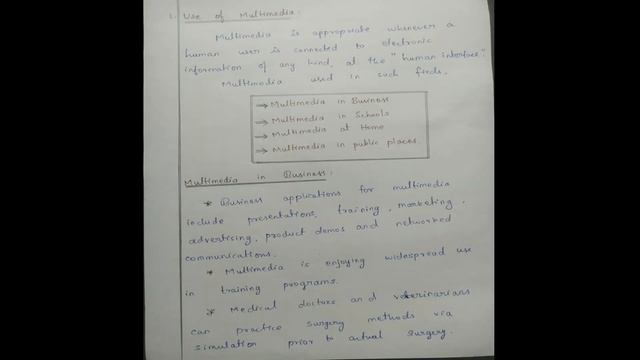 1. Use of Multimedia:
Multimedia is appropriate whenever a
human user is connected to electronic
information of any kind, at the "human interface".
Multimedia used in such fields.
⇒ Multimedia in Business
⇒ Multimedia in Schools
⇒ Multimedia at Home
⇒ Multimedia in public places.
Multimedia in Business:
* Business applications for multimedia
include presentations, training, marketing,
advertising, product demos and networked
communications.
* Multimedia is enjoying widespread use
in training programs.
* Medical doctors and veterinarians
can practice surgery methods via
simulation prior to actual surgery.